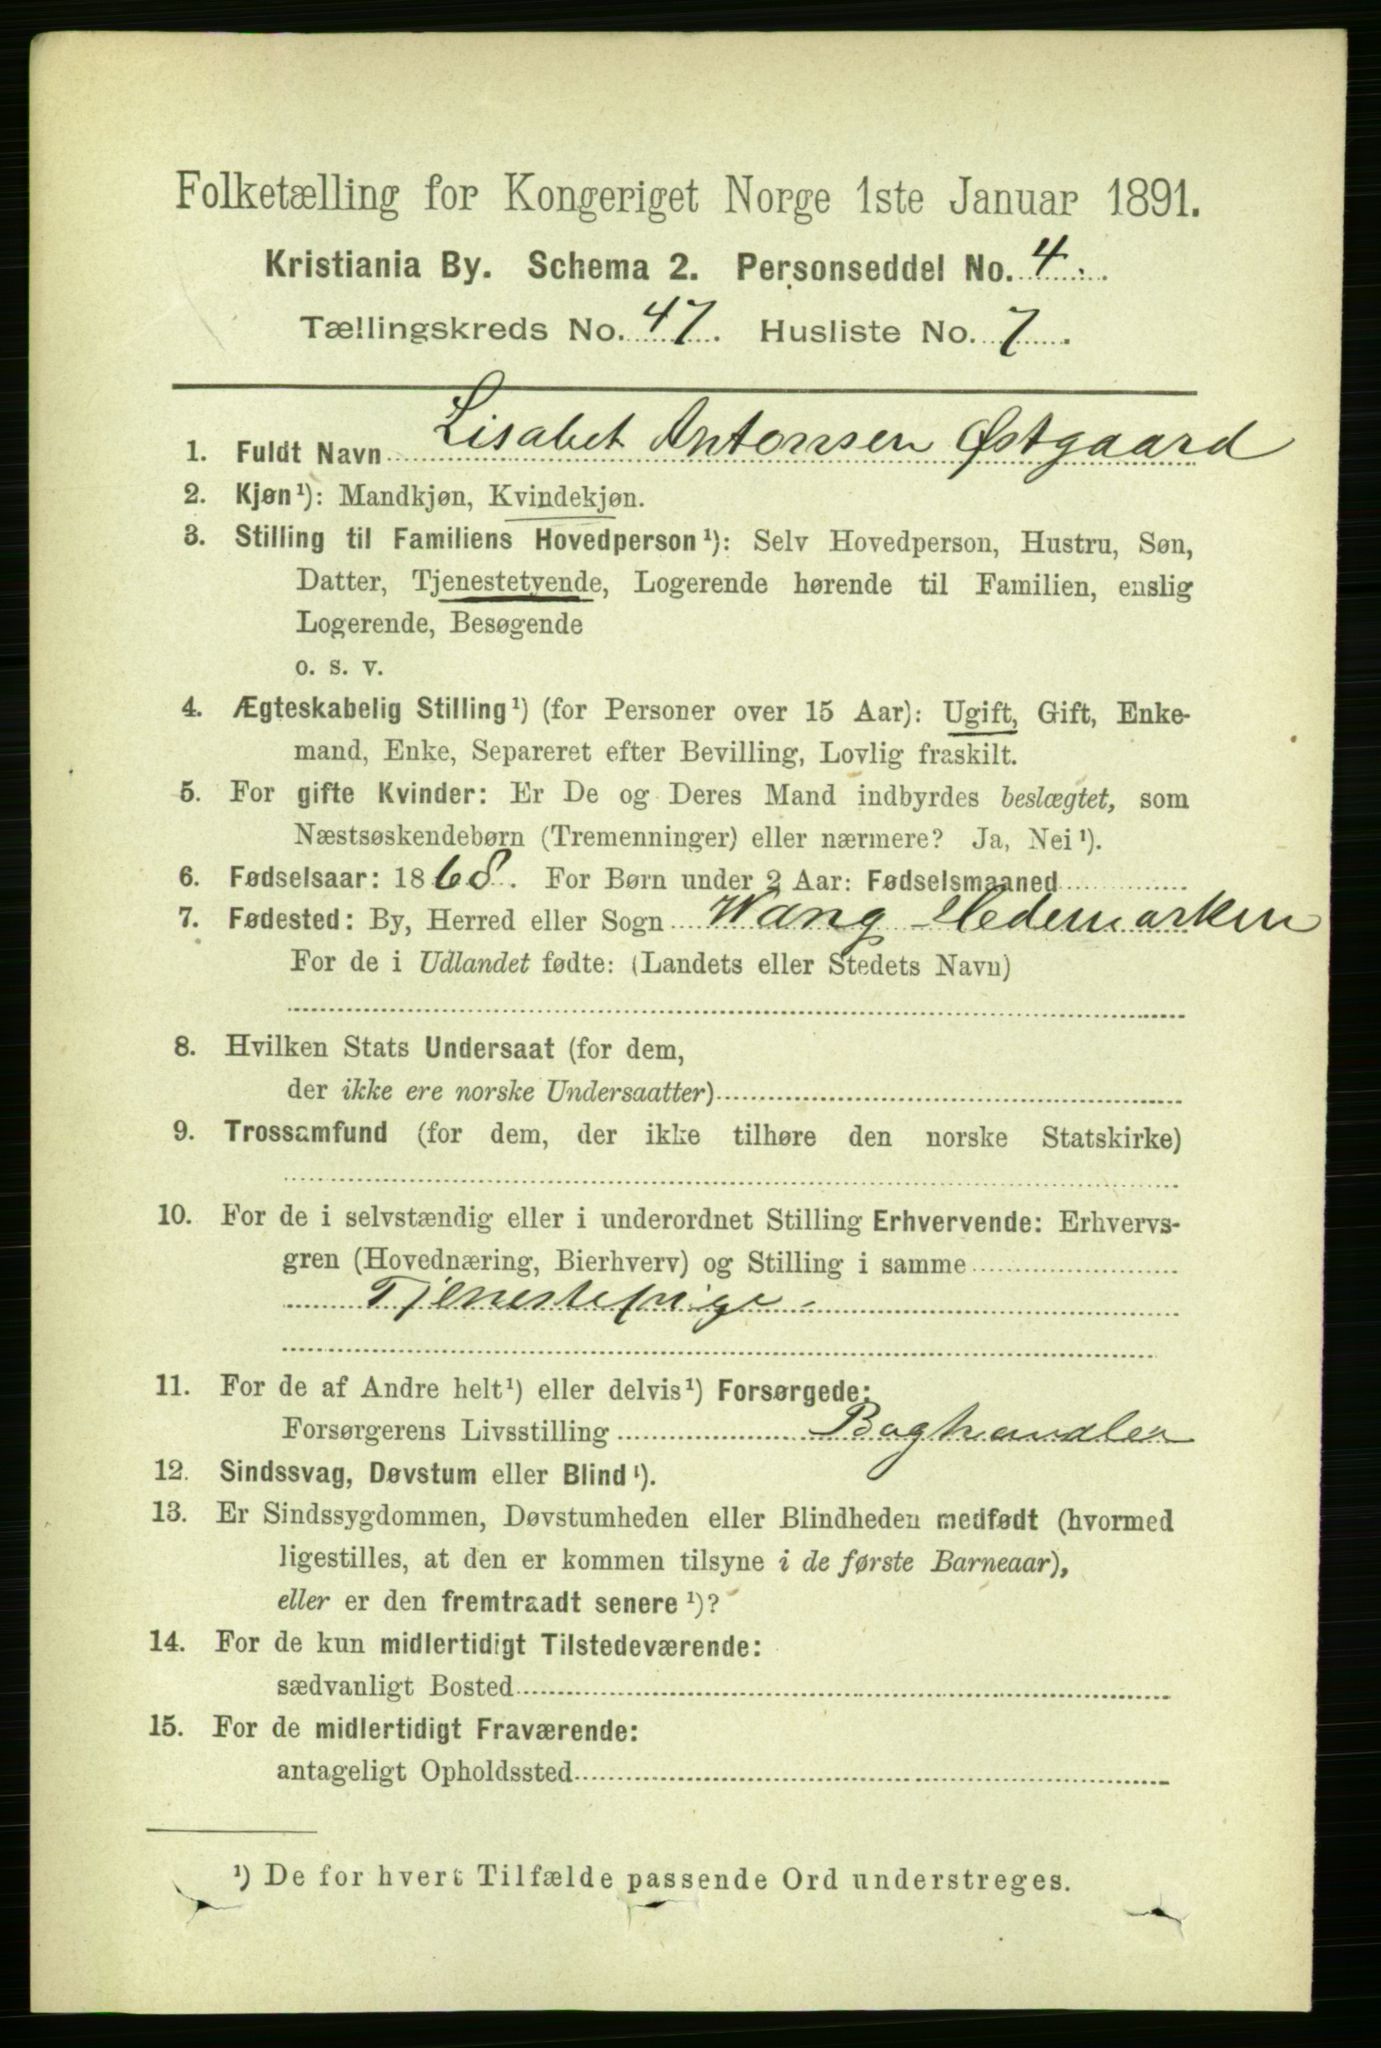 Folketælling for Kongeriget Norge 1ste Januar 1891.
Kristiania By. Schema 2. Personseddel No. 4.
Tællingskreds No. 47. Husliste No. 7.
1. Fuldt Navn Lisabet Antonsen Østgaard
2. Kjøn¹): Mandkjøn, Kvindekjøn.
3. Stilling til Familiens Hovedperson¹): Selv Hovedperson, Hustru, Søn,
Datter, Tjenestetyende, Logerende hørende til Familien, enslig
Logerende, Besøgende
o. s. v.
4. Ægteskabelig Stilling¹) (for Personer over 15 Aar): Ugift, Gift, Enke-
mand, Enke, Separeret efter Bevilling, Lovlig fraskilt.
5. For gifte Kvinder: Er De og Deres Mand indbyrdes beslægtet, som
Næstsøskendebørn (Tremenninger) eller nærmere? Ja, Nei¹).
6. Fødselsaar: 1868. For Børn under 2 Aar: Fødselsmaaned
7. Fødested: By, Herred eller Sogn Wang Hedemarken
For de i Udlandet fødte: (Landets eller Stedets Navn)
8. Hvilken Stats Undersaat (for dem,
der ikke ere norske Undersaatter)
9. Trossamfund (for dem, der ikke tilhøre den norske Statskirke)
10. For de i selvstændig eller i underordnet Stilling Erhvervende: Erhvervs-
gren (Hovednæring, Bierhverv) og Stilling i samme
Tjenestepige -
11. For de af Andre helt¹) eller delvis¹) Forsørgede:
Forsørgerens Livsstilling Boghandler
12. Sindssvag, Døvstum eller Blind¹).
13. Er Sindssygdommen, Døvstumheden eller Blindheden medfødt (hvormed
ligestilles, at den er kommen tilsyne i de første Barneaar),
eller er den fremtraadt senere¹)?
14. For de kun midlertidigt Tilstedeværende:
sædvanligt Bosted
15. For de midlertidigt Fraværende:
antageligt Opholdssted
¹) De for hvert Tilfælde passende Ord understreges.